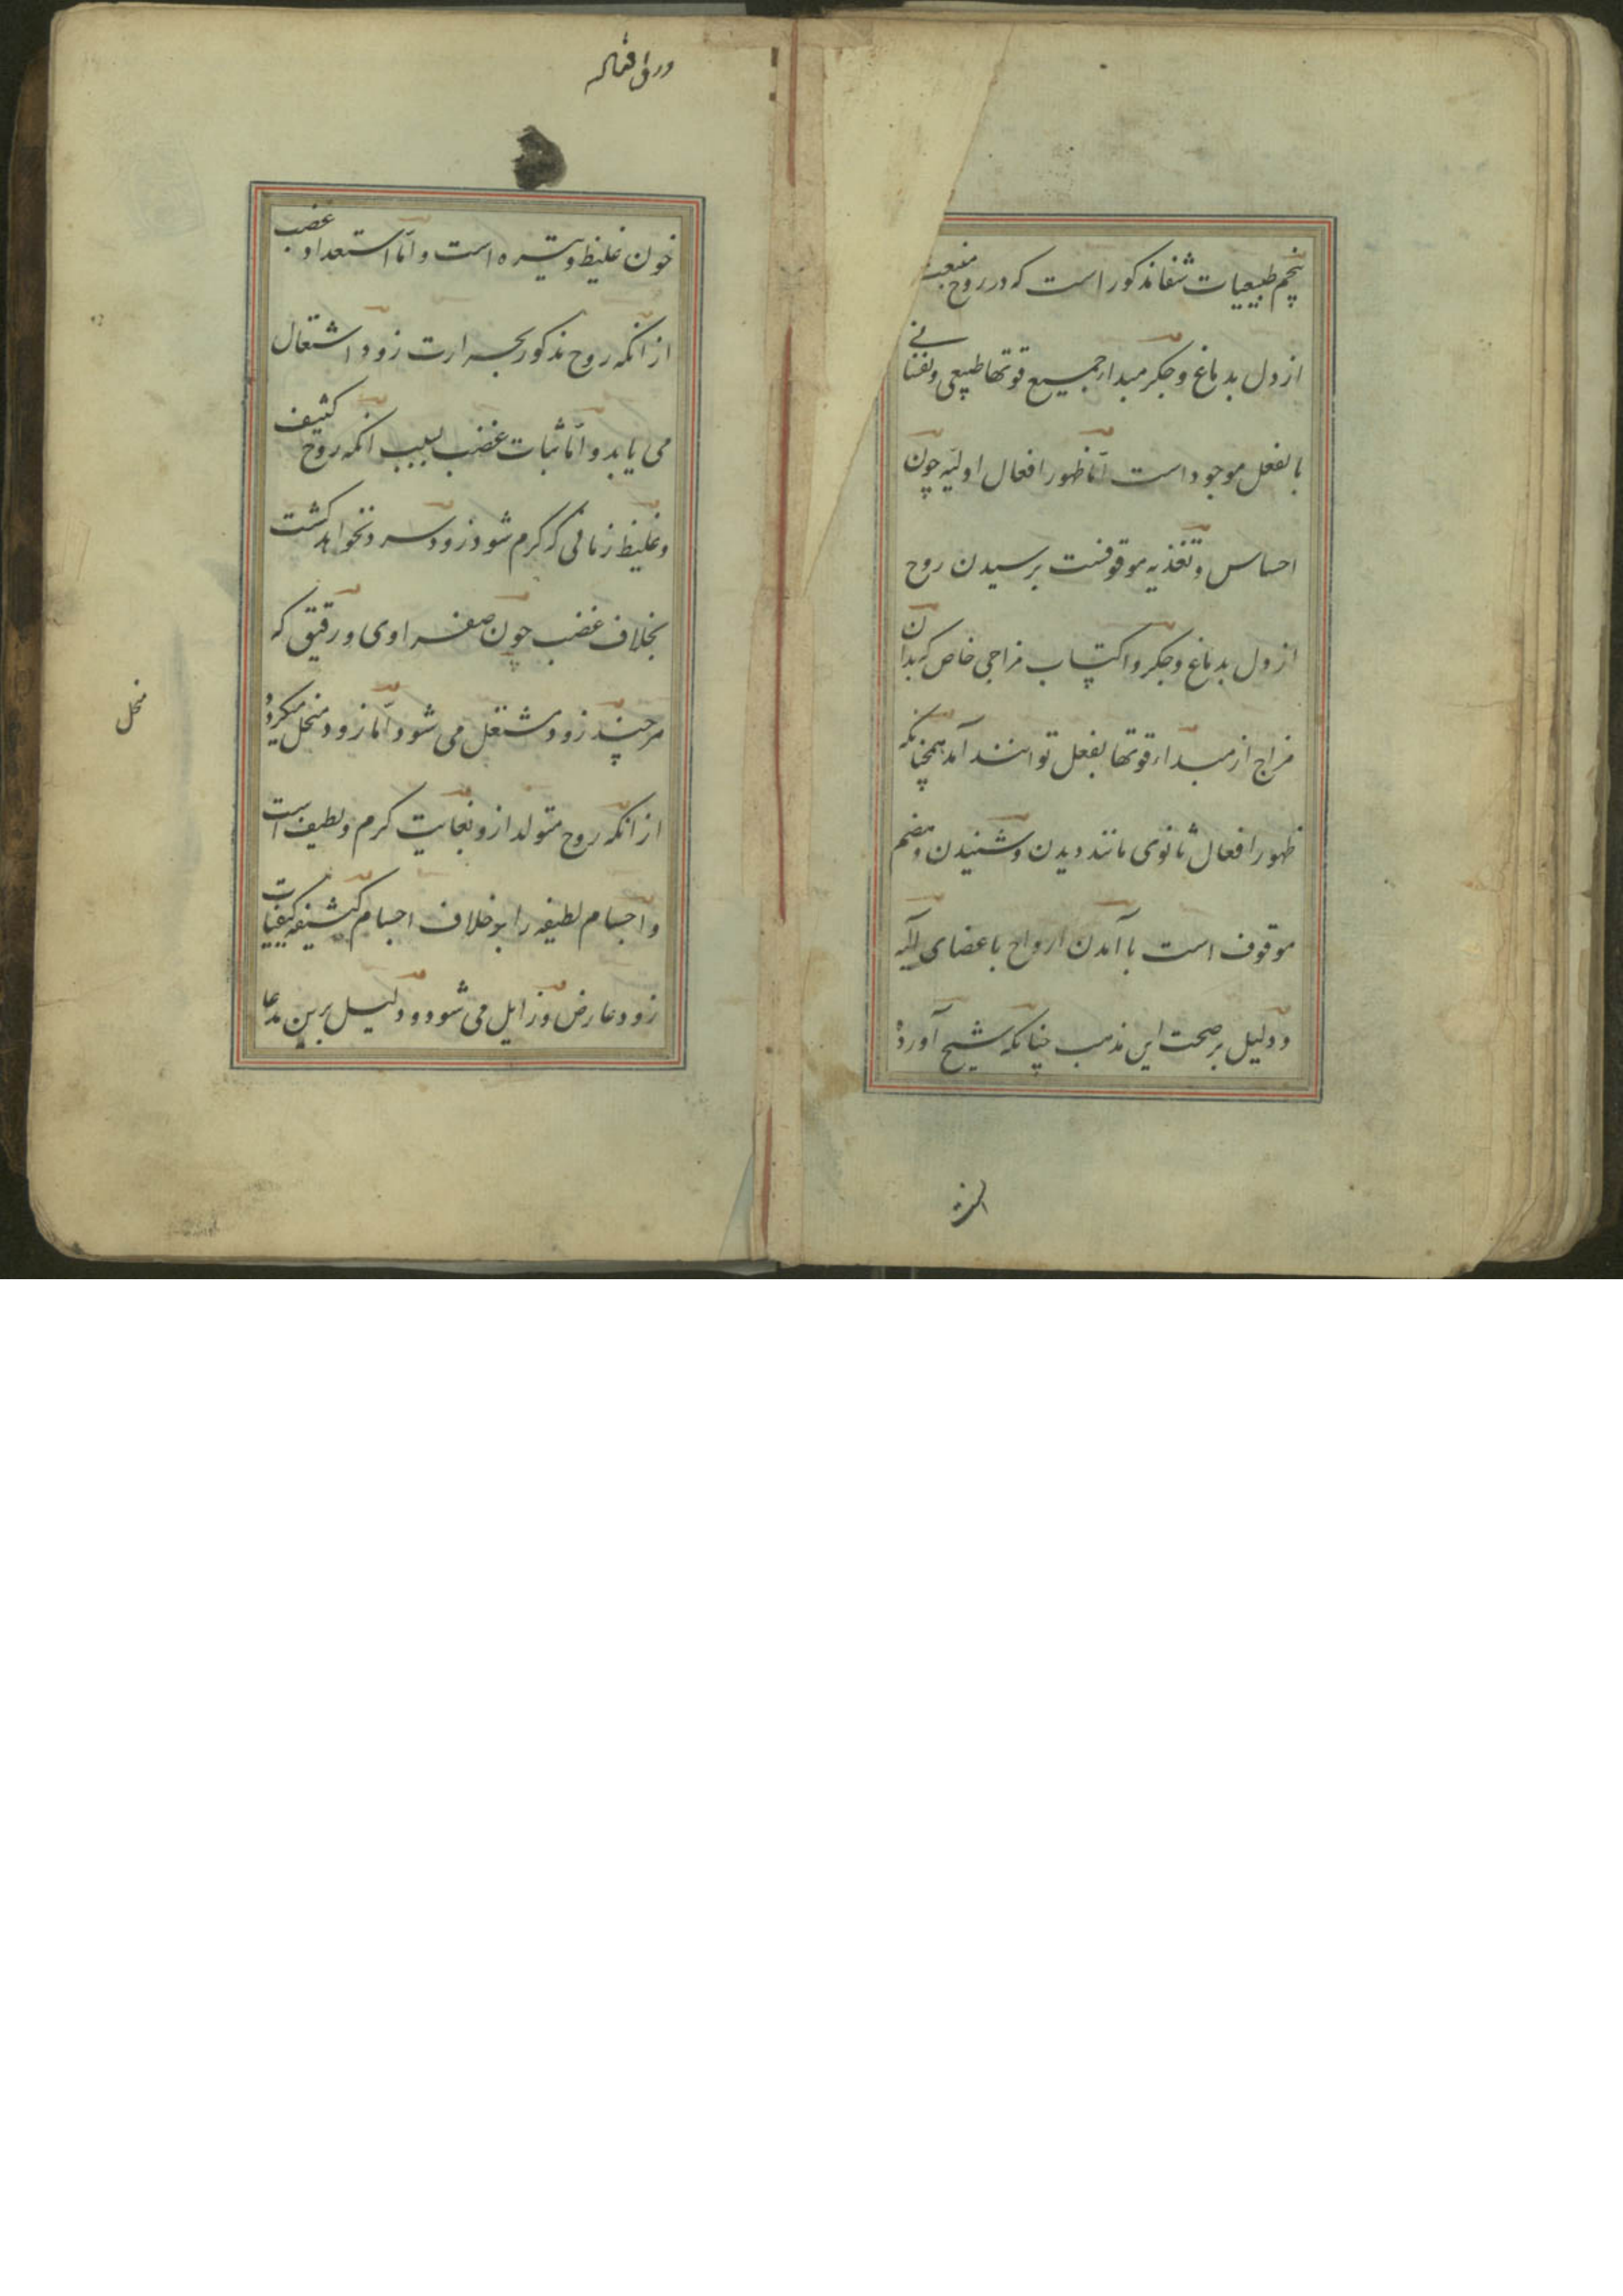 پنجم طبیعیات شفا مذکور است که در روح منبعث
از دل بدماغ و جکر مبداء جمیع قوتها طبیعی و نفسانی
بالفعل موجود است امّا ظهور افعال اولیّه چون
احساس و تغذیه موقوفست برسیدن روح
از دل بدماغ و جکر و اکتساب مزاجی خاص که بدان
مزاج از مبداء قوتها بفعل توانند آمد همچنانکه
ظهور افعال ثانوی مانند دیدن و شنیدن و هضم
موقوف است با آمدن ارواح باعضای آلیه
و دلیل بر صحت این مذهب چنانکه شیخ آورده
خون غلیظ و تیره است و امّا استعداد غضب
از انکه روح مذکور بحرارت زود اشتعال
می یابد و امّا ثبات غضب بسبب انکه روح کثیف
و غلیظ زمانی که کرم شود زود سرد نخواهد کشت
بخلاف غضب چون صفراوی و رقیق که
هرچند زود مشتعل می شود امّا زود منحل میکردد
از انکه روح متولد ازو بغایت کرم و لطیف است
و اجسام لطیفه را بر خلاف اجسام کثیفه کیفیات
زود عارض و زایل می شود و دلیل برین مدعا
منحل